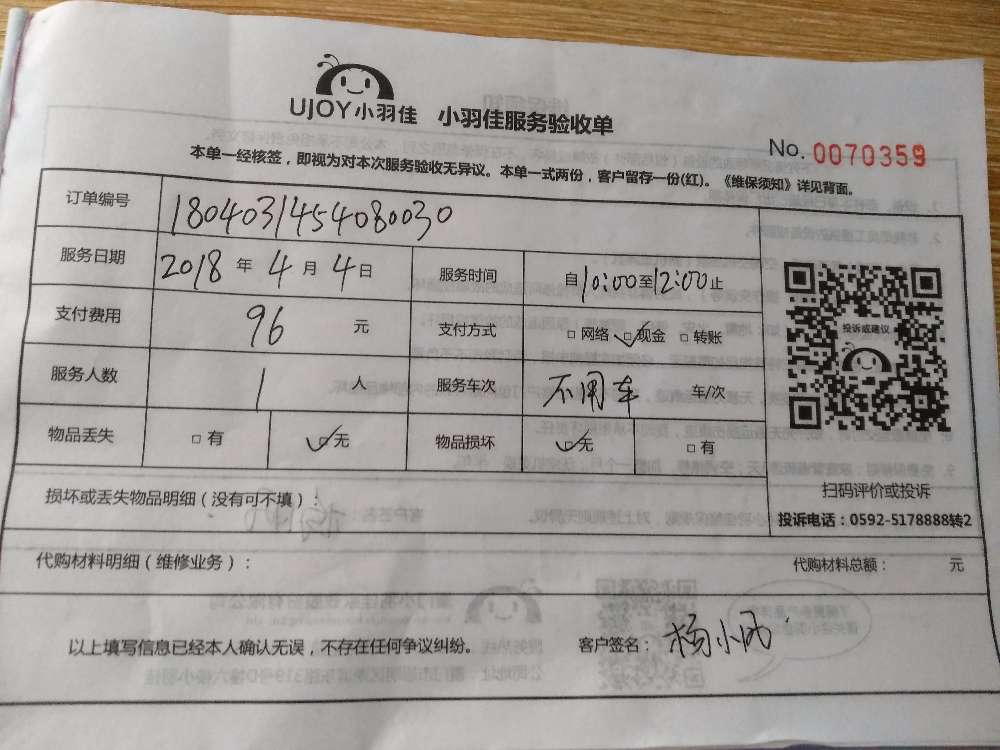 UJOY小羽佳 小羽佳服务验收单
No. 0070359
本单一经核签，即视为对本次服务验收无异议。本单一式两份，客户留存一份(红)。《维保须知》详见背面。
订单编号 1804031454080030
服务日期 2018年4月4日 服务时间 自10:00至12:00止
支付费用 96元 支付方式 □网络 ☑现金 □转账
投诉或建议
服务人数 1人 服务车次 不用车 车/次
物品丢失 □有 ☑无 物品损坏 ☑无 □有
扫码评价或投诉
损坏或丢失物品明细（没有可不填）：
投诉电话：0592-5178888转2
代购材料明细（维修业务）： 代购材料总额： 元
以上填写信息已经本人确认无误，不存在任何争议纠纷。 客户签名：杨小凤